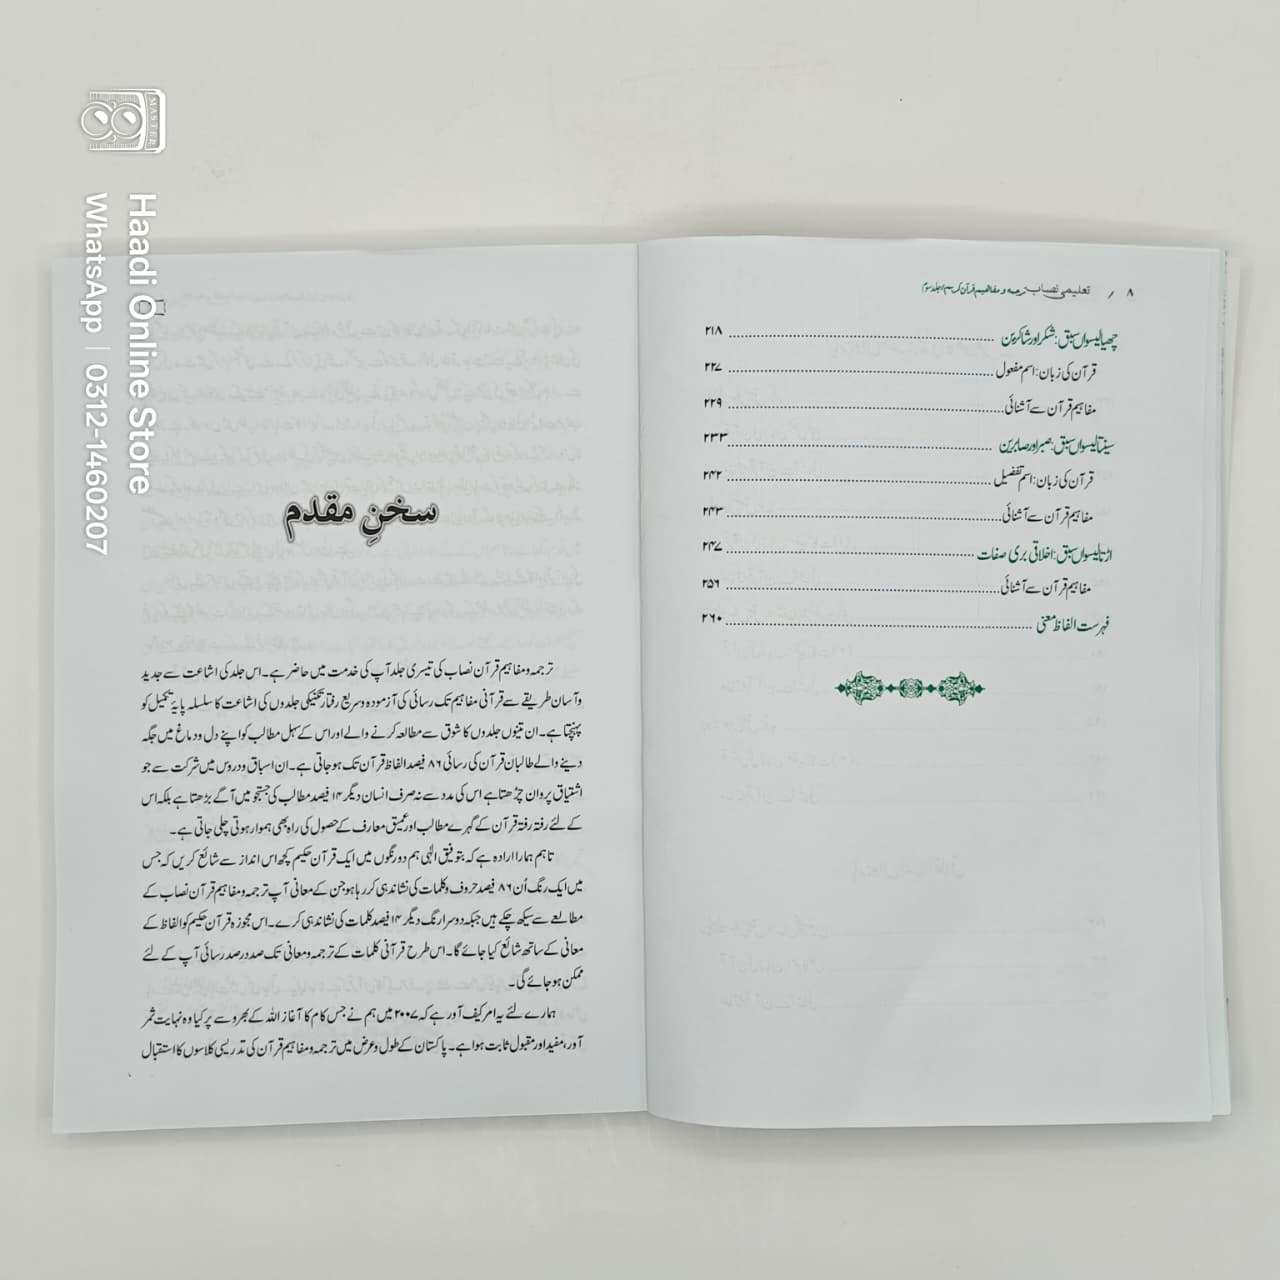 MASTER
Haadi Online Store
WhatsApp | 0312-1460207
۸ / تعلیمی نصاب ترجمہ و مفاہیم قرآن کریم/جلد سوم
چھیالیسواں سبق: شکر اور شاکرین ۲۱۸
قرآن کی زبان: اسم مفعول ۲۲۷
مفاہیم قرآن سے آشنائی ۲۲۹
سینتالیسواں سبق: صبر اور صابرین ۲۳۳
قرآن کی زبان: اسم تفضیل ۲۴۲
مفاہیم قرآن سے آشنائی ۲۴۳
اڑتالیسواں سبق: اخلاقی بری صفات ۲۴۷
مفاہیم قرآن سے آشنائی ۲۵۶
فہرست الفاظ معنی ۲۶۰
سخنِ مقدم
ترجمہ و مفاہیم قرآن نصاب کی تیسری جلد آپ کی خدمت میں حاضر ہے۔ اس جلد کی اشاعت سے جدید
و آسان طریقے سے قرآنی مفاہیم تک رسائی کی آزمودہ و سریع رفتار تکنیکی جلدوں کی اشاعت کا سلسلہ پایۂ تکمیل کو
پہنچتا ہے۔ ان تینوں جلدوں کا شوق سے مطالعہ کرنے والے اور اس کے سہل مطالب کو اپنے دل و دماغ میں جگہ
دینے والے طالبان قرآن کی رسائی ۸۶ فیصد الفاظ قرآن تک ہو جاتی ہے۔ ان اسباق و دروس میں شرکت سے جو
اشتیاق پروان چڑھتا ہے اس کی مدد سے نہ صرف انسان دیگر ۱۴ فیصد مطالب کی جستجو میں آگے بڑھتا ہے بلکہ اس
کے لئے رفتہ رفتہ قرآن کے گہرے مطالب اور عمیق معارف کے حصول کی راہ بھی ہموار ہوتی چلی جاتی ہے۔
تاہم ہمارا ارادہ ہے کہ بتوفیق الٰہی ہم دو رنگوں میں ایک قرآن حکیم کچھ اس انداز سے شائع کریں کہ جس
میں ایک رنگ اُن ۸۶ فیصد حروف و کلمات کی نشاندہی کر رہا ہو جن کے معانی آپ ترجمہ و مفاہیم قرآن نصاب کے
مطالعے سے سیکھ چکے ہیں جبکہ دوسرا رنگ دیگر ۱۴ فیصد کلمات کی نشاندہی کرے۔ اس مجوزہ قرآن حکیم کو الفاظ کے
معانی کے ساتھ شائع کیا جائے گا۔ اس طرح قرآنی کلمات کے ترجمہ و معانی تک صد در صد رسائی آپ کے لئے
ممکن ہو جائے گی۔
ہمارے لئے یہ امر کیف آور ہے کہ ۲۰۰۷ میں ہم نے جس کام کا آغاز اللہ کے بھروسے پر کیا وہ نہایت ثمر
آور، مفید اور مقبول ثابت ہوا ہے۔ پاکستان کے طول و عرض میں ترجمہ و مفاہیم قرآن کی تدریسی کلاسوں کا استقبال